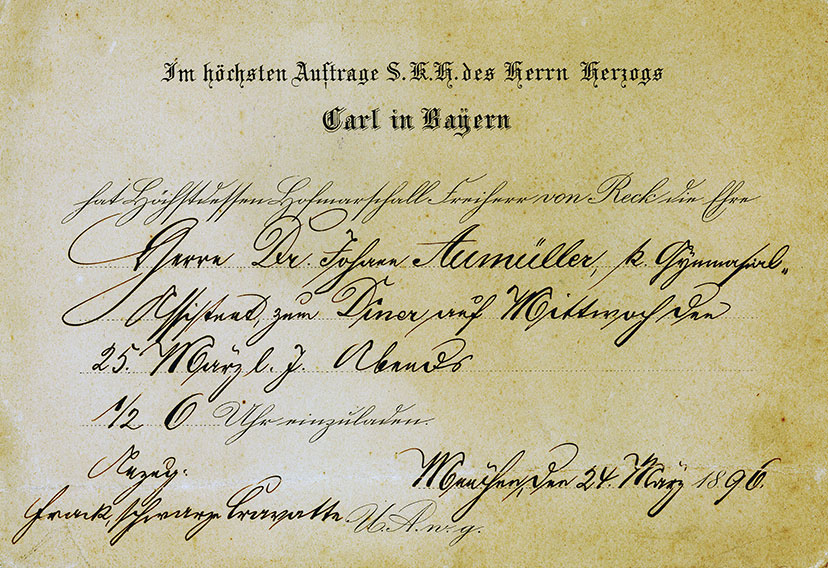 Im höchsten Auftrage S.K.H. des Herrn Herzogs
Carl in Bayern
hat Höchstdessen Hofmarschall Freiherr von Reck die Ehre
Herrn Dr. Johann Aumüller, k. Gymnasial-
Assistent, zum Diner auf Mittwoch den
25. März l. J. Abends
1/2 6 Uhr einzuladen.
Anzug:
Frack, schwarze Cravatte
München, den 24. März 1896.
U. A. w. g.